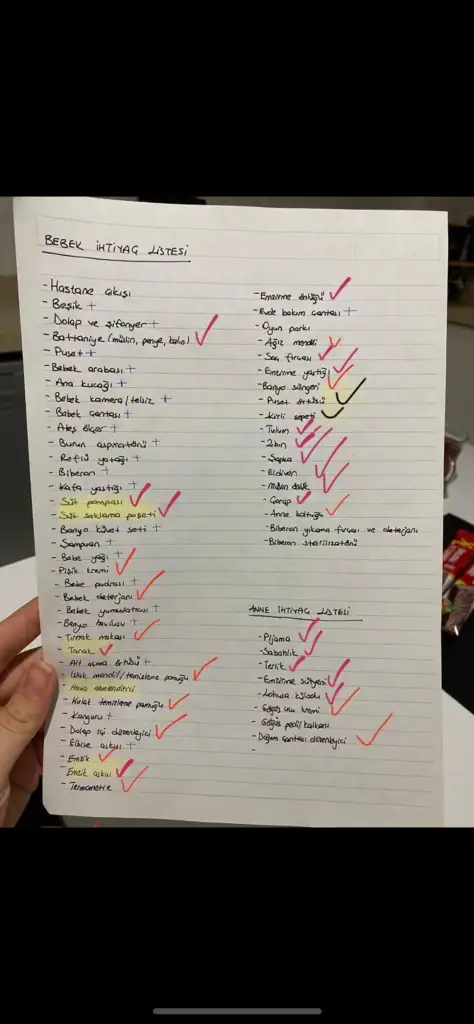 BEBEK İHTİYAÇ LİSTESİ
- Hastane çıkışı
- Beşik +
- Dolap ve şifonyer +
- Battaniye (müslin, penye, kalın)
- Puset +
- Bebek arabası +
- Ana kucağı +
- Bebek kamera/telsiz +
- Bebek çantası +
- Ateş ölçer +
- Burun aspiratörü +
- Reflü yatağı +
- Biberon +
- Kafa yastığı +
- Süt pompası
- Süt saklama poşeti
- Banyo küvet seti +
- Şampuan +
- Bebe yağı +
- Pişik kremi
- Bebe pudrası +
- Bebek deterjanı
- Bebek yumuşatıcısı +
- Banyo havlusu +
- Tırnak makası
- Tarak
- Alt açma örtüsü +
- Islak mendil/temizleme pamuğu
- Hava nemlendirici
- Kulak temizleme pamuğu
- Kanguru +
- Dolap içi düzenleyici
- Elbise askısı +
- Emzik
Emzik askısı
- Termometre
- Emzirme önlüğü
- Evde bakım çantası +
- Oyun parkı
- Ağız mendili
- Saç fırçası
- Emzirme yastığı
- Banyo süngeri
- Puset örtüsü
- Kirli sepeti
- Tulum
- Zıbın
- Şapka
- Eldiven
- Çorap
- Anne koltuğu
- Biberon yıkama fırçası ve deterjanı
- Biberon sterilizatörü
ANNE İHTİYAÇ LİSTESİ
- Pijama
- Sabahlık
- Terlik
- Emzirme sütyeni
- Lohusa külodu
- Göğüs ucu kremi
- Göğüs pedi/kalkanı
- Doğum çantası düzenleyici
-